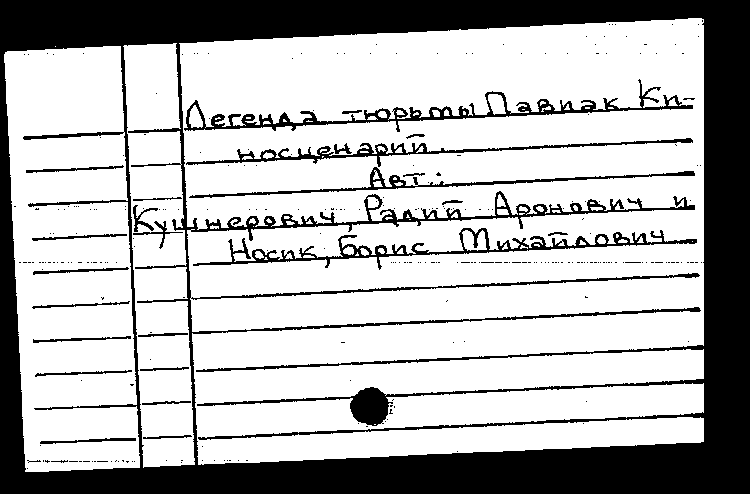 Легенда тюрьмы Павиак Ки-
носценарий.
Авт.:
Кушнерович, Радий Аронович и
Носик, Борис Михайлович